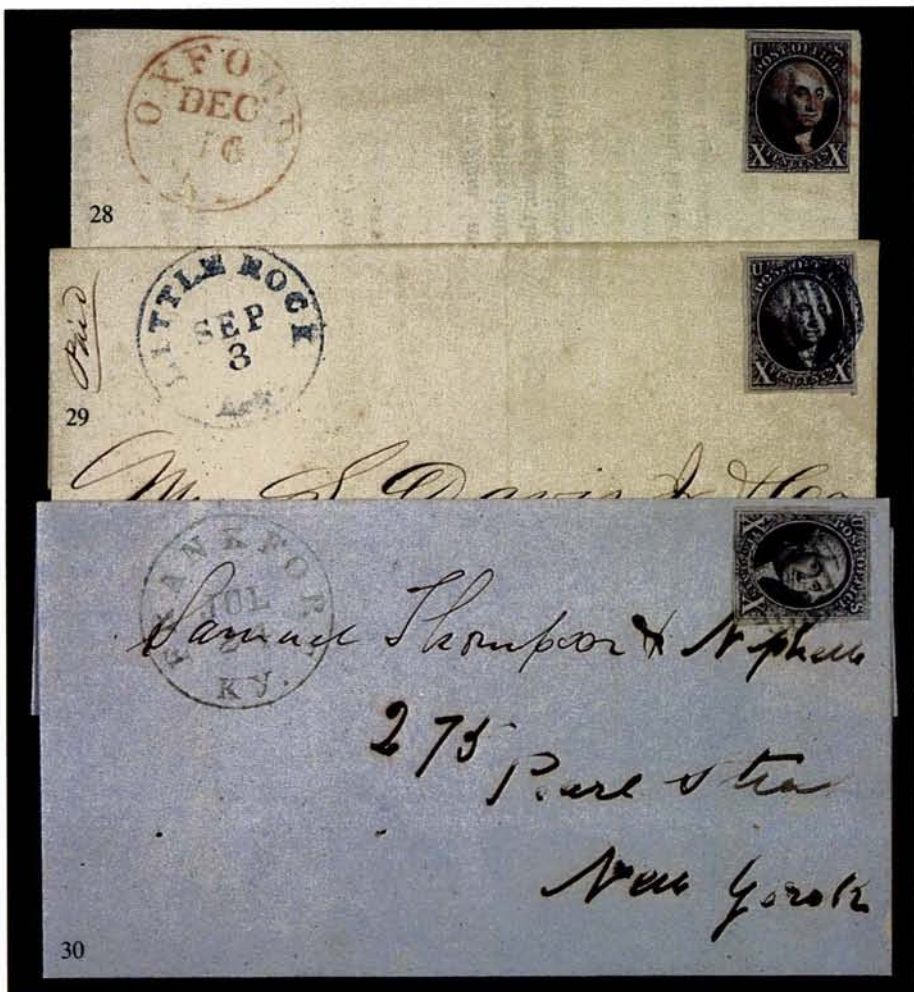 OXFORD
DEC
16
U S
POST OFFICE
X TEN CENTS X
28
LITTLE ROCK
SEP
3
Ark.
Paid
U S
POST OFFICE
X TEN CENTS X
29
FRANKFORT
JUL
KY.
U S
POST OFFICE
X TEN CENTS X
Samuel Thompson & Nephew
275
Pearl Stree
New York
30